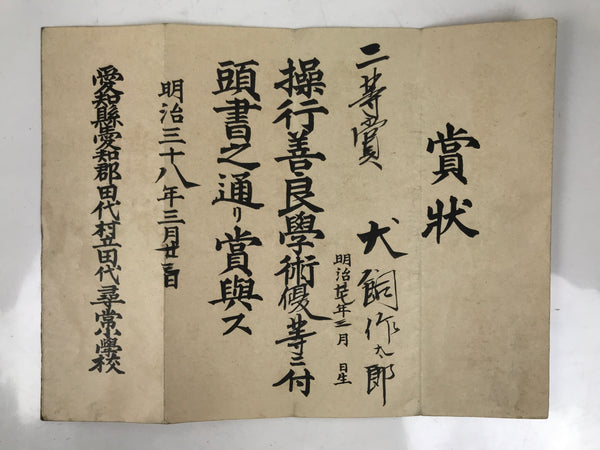 賞狀
二等賞
犬飼作太郎
明治廿七年三月 日生
操行善良學術優等ニ付
頭書之通リ賞與ス
明治三十八年三月廿三日
愛知縣愛知郡田代村立田代尋常小學校